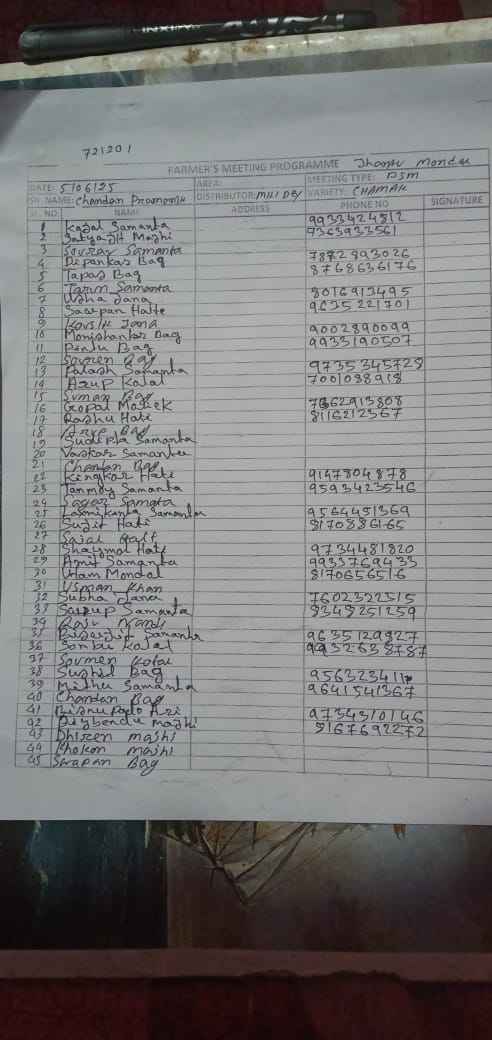 721201
FARMER'S MEETING PROGRAMME Jhantu Mondal
DATE: 5/06/25 AREA: MEETING TYPE: PSM
NAME: Chandan Pramanik DISTRIBUTOR: MILI DEY VARIETY: CHAMAK
SL. NO. NAME ADDRESS PHONE NO SIGNATURE
1 Kajal Samanta 9933424812
2 Satyajit Majhi 9363933561
3 Sourav Samanta
4 Dipankar Bag 7872893026
5 Tapas Bag 8768636176
6 Tarun Samanta
7 Usha Jana 8016913495
8 Saerpan Haite 9635221701
9 Koushik Jana
10 Monishankar Bag 9002890099
11 Pintu Bag 9933190507
12 Souren Bag
13 Palash Samanta 9735345728
14 Arup Kalal 7001088918
15 Suman Bag
16 Gopal Malick 7662913808
17 Raghu Hati 8116212367
18 Arup Bag
19 Sudipta Samanta
20 Vaskar Samanta
21 Chandan Bag
22 Kingkar Hati 9147804878
23 Tanmoy Samanta 9593423546
24 Sagar Samanta
25 Laxmikanta Samanta 9564451369
26 Sujit Hati 8170886165
27 Sajal Hati
28 Shaymal Hati 9734481820
29 Amit Samanta 9933769433
30 Uttam Mondal 8170656516
31 Usman Khan
32 Subha Jana 7602322515
33 Sarup Samanta 8348251259
34 Rabi Mandi
35 Biswajit Samanta 9635129827
36 Sombu Kalal 9932638787
37 Soumen Kotal
38 Sushid Bag 956323411
39 Mithu Samanta 9641541367
40 Chandan Bag
41 Bishnupado Hazi 9734310146
42 Dibybendu Majhi 8167692272
43 Dhiren majhi
44 Khokon majhi
45 Swapan Bag